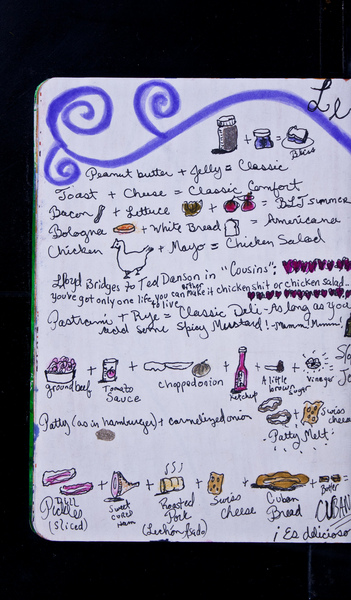 Le
Bliss
Peanut butter + Jelly = Classic
Toast + Cheese = Classic Comfort
Bacon + Lettuce + = BLT summer
Bologna + White Bread = Americana
Chicken + Mayo = Chicken Salad
Lloyd Bridges to Ted Danson in "Cousins":
you've got only one life to live, you can either make it chicken shit or chicken salad
Pastrami + Rye = Classic Deli - As long as you
add some Spicy Mustard! - Mmmm Mmmm!
ground beef + Tomato Sauce + chopped onion + Ketchup + A little brown sugar + Vinegar
Patty (as in hamburger) + carmelized onion + Swiss cheese
Patty Melt
Dill Pickles (Sliced) + Sweet cured Ham + Roasted Pork (Lechón Asado) + Swiss Cheese + Cuban Bread + Butter =
CUBAN
¡Es delicioso